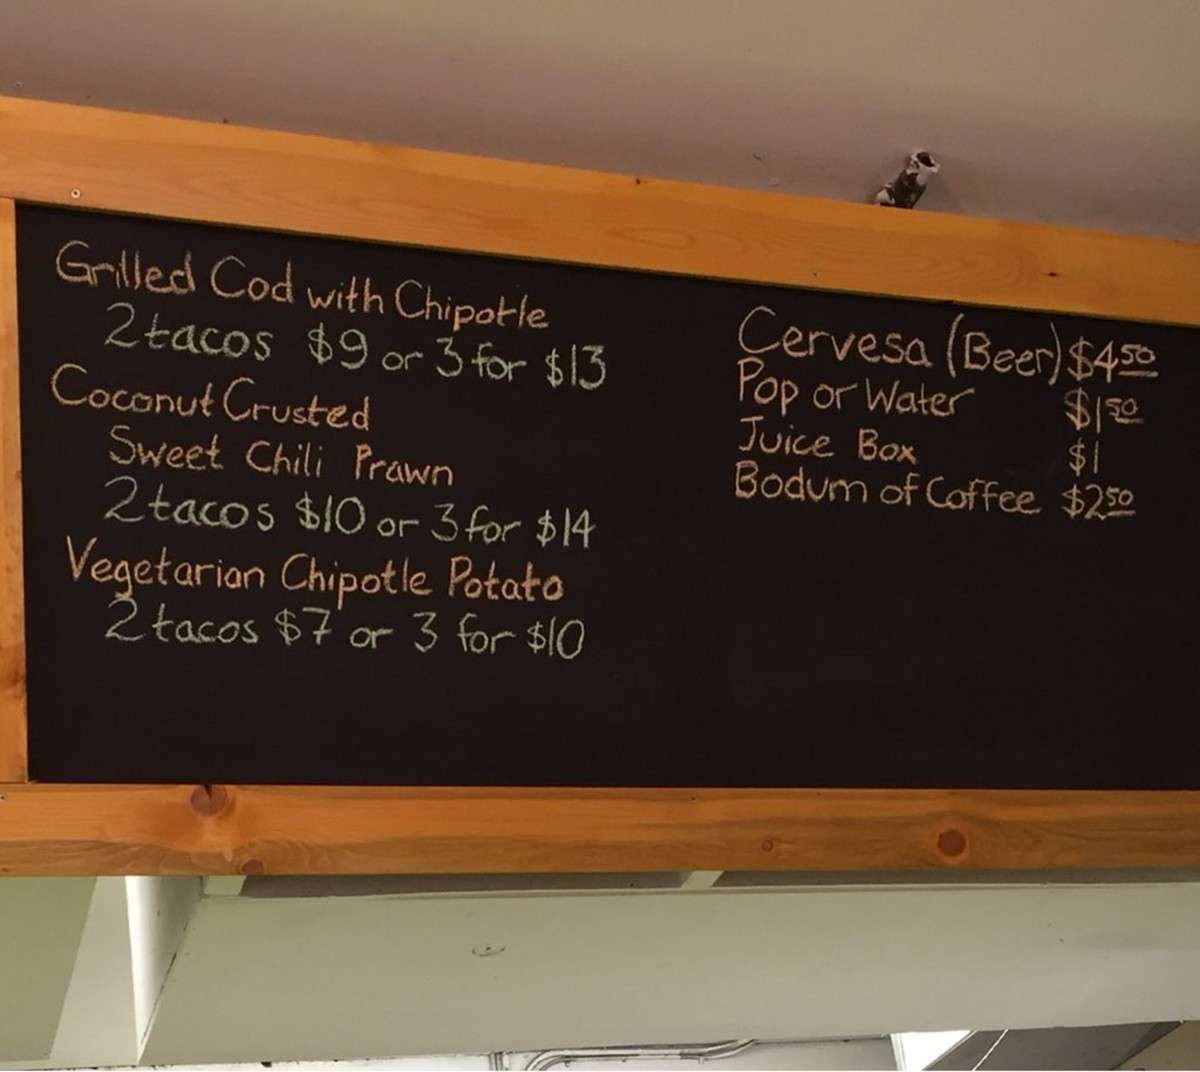 Grilled Cod with Chipotle
2 tacos $9 or 3 for $13
Coconut Crusted
Sweet Chili Prawn
2 tacos $10 or 3 for $14
Vegetarian Chipotle Potato
2 tacos $7 or 3 for $10
Cervesa (Beer) $4.50
Pop or Water $1.50
Juice Box $1
Bodum of Coffee $2.50